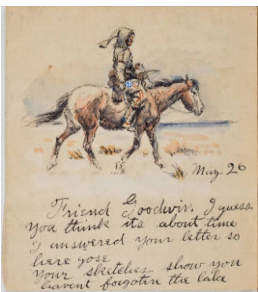 May 26
Friend Goodwin. I guess
you think its about time
I answered your letter so
here gose
your sketches show you
havent forgoten the lake